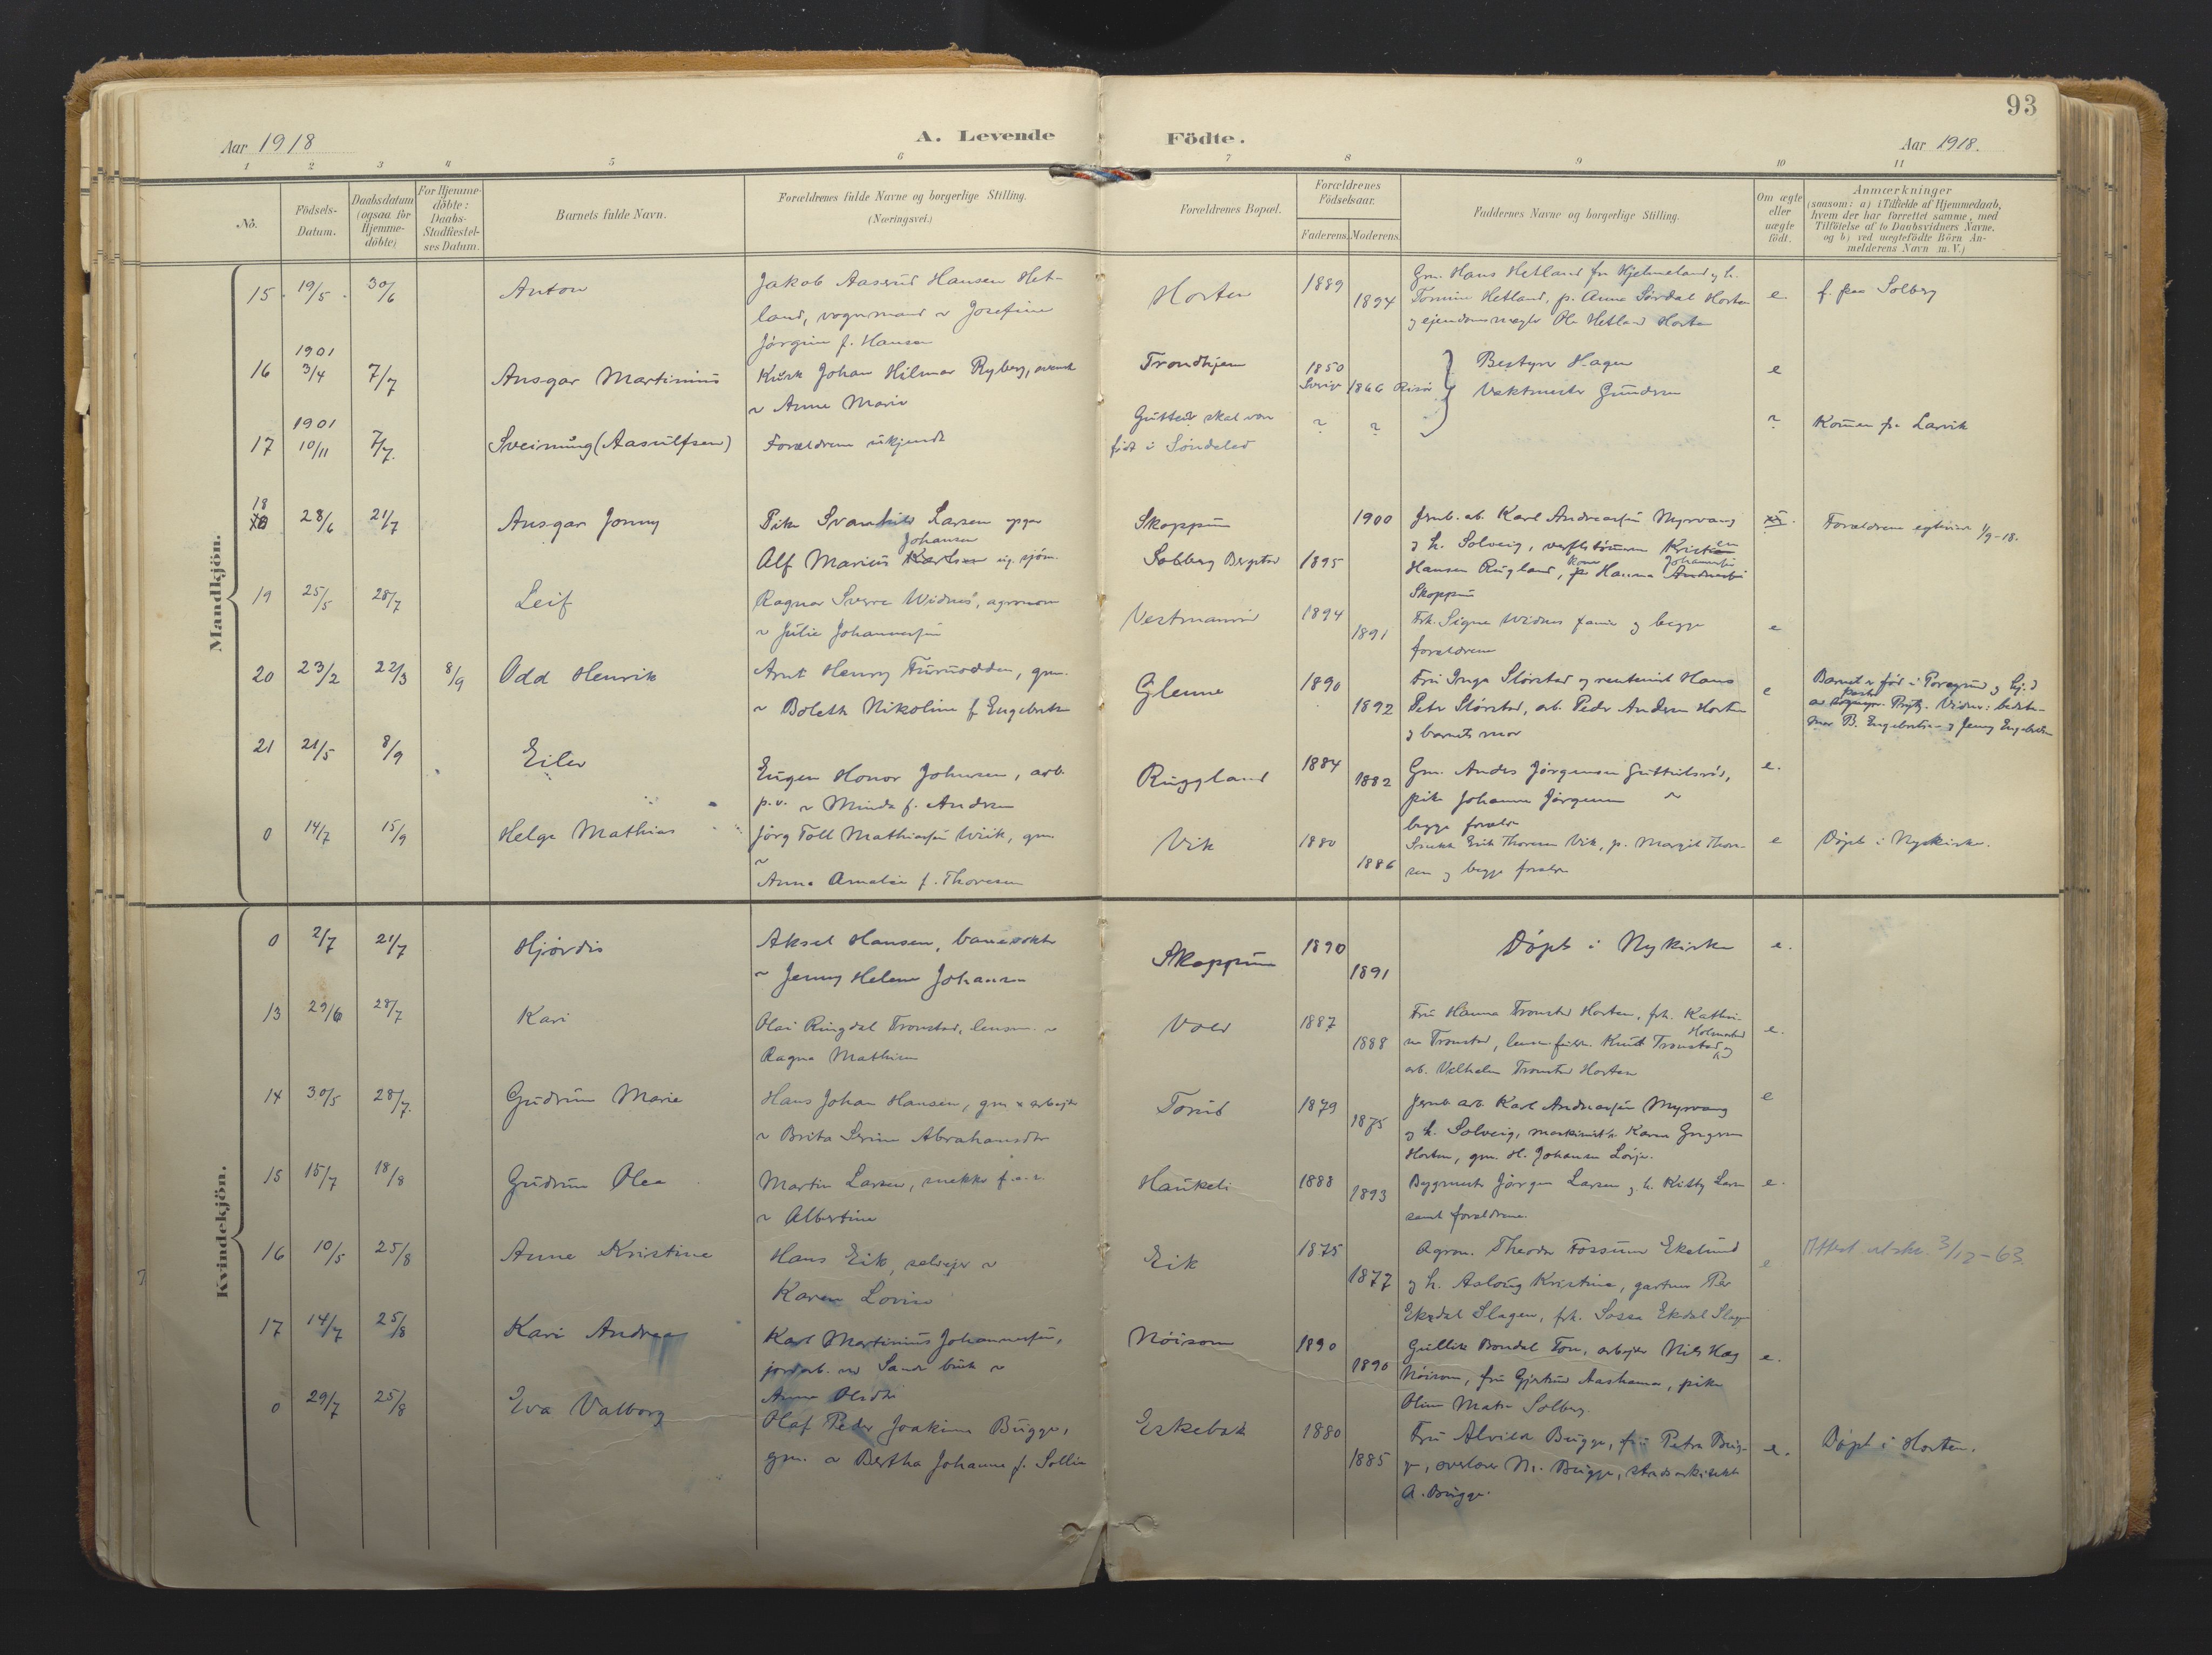 93
Aar 1918
A. Levende Födte.
Aar 1918.
1 2 3 4 5 6 7 8 9 10 11
No.
Födsels-Datum.
Daabsdatum (ogsaa for Hjemme-döbte)
For Hjemme-döbte: Daabs-Stadfæstel-ses Datum.
Barnets fulde Navn.
Forældrenes fulde Navne og borgerlige Stilling.
(Næringsvei.)
Forældrenes Bopæl.
Forældrenes Födselsaar.
Faderens. Moderens.
Faddernes Navne og borgerlige Stilling.
Om ægte eller uægte födt.
Anmærkninger
(saasom: a) i Tilfælde af Hjemmedaab,
hvem der har forrettet samme, med
Tilföielse af to Daabsvidners Navne,
og b) ved uægtefödte Börn An-
melderens Navn m. V.)
Mandkjön.
15. 19/5. 30/6 Anton
Jakob Aaserud Hansen Het-
land, vognmand & Josefine
Jörgine f. Hansen
Horten 1889 1894
Gm. Hans Hetland fra Hjelmeland & h.
Tomine Hetland, p. Anna Sördal Horten
og ejendomsmægler Ole Hetland Horten
e. f. paa Solberg
16 1901 3/4 7/7 Ansgar Martinius
Kusk Johan Hilmar Ryberg, svensk
& Anne Marie
Trondhjem 1850 Sverige 1866 Risör
Bestyrer Hagen
Vaktmester Gundersen
e
17 1901 10/11 7/7. Sveinung (Aasulfsen)
Forældrene ukjendt
Gutten skal være
födt i Söndeled
? ? ? Kommer fra Larvik
18 28/6 21/7 Ansgar Jonny
Pike Svanhild Larsen opgav
Johansen
Alf Marius Karlsen ug. sjöm.
Skoppum
Solberg Bergsted 1895 1900
Jernb. arb. Karl Andreassen Myrvang
& h. Solveig, verftstömmerm. Kristian
Hansen Rugland, kone Hanna Johannesen
Skoppum
Forældrene egteviet 1/9-18.
19 25/5 28/7 Leif
Ragnar Sverre Widnes, agronom
& Julie Johannessen
Vestmanröd 1894 1891
Frk. Signe Widnes og begge
forældrene
e
20 23/2 22/3 8/9 Odd Henrik
Arnt Henry Furuodden, gm.
& Boleth Nikoline f. Engebretsen
Glenne 1890 1892
Fru Inga Störstad og rentenist Hans
Peter Störstad, arb. Peder Andersen Horten
og barnets mor
e
Barnet er föd i Porsgrund og hj.d
mor B. Engebretsen og Jenny Engebretsen
21 21/5 8/9 Eilev
Eugen Honor Johnsen, arb.
p.v. & Minda f. Andersen
Ruggland 1884 1882
Gm. Anders Jörgensen Guttulsröd,
pike Johanne Jörgensen &
begge foreldre
e.
0 14/7 15/9 Helge Mathias
Jörg Toll Mathiassen Wiik, gm
&
Anna Amalie f. Thoresen
Vik 1880 1886
Snekk. Erik Thoresen Vik, p. Margit Thore-
sen og begge foreldre
e Döpt i Nykirke.
Kvindekjön.
0 2/7 21/7 Hjördis
Aksel Hansen, banevokter
& Jenny Helene Johansen
Skoppum 1890 1891
Döpt i Nykirke e.
13 29/6 28/7 Kari
Olai Ringdal Tronstad, lensm. &
Ragna Mathisen
Vold 1887 1888
Fru Hanna Tronstad Horten, frk. Kathri-
ne Tronstad, lensm.fuldm. Knut Tronstad Holmestrand og
arb. Vilhelm Tronstad Horten
e.
14 30/5 28/7. Gudrun Marie
Hans Johan Hansen, gm & arbejder
& Brita Serine Abrahamsdtr
Torud 1879 1875
Jernb. arb. Karl Andreassen Myrvang
& h. Solveig, maskinisth. Karen Gregersen
Horten, gm. H. Johansen Lörje.
e
15 15/7 18/8 Gudrun Olea
Martin Larsen, snekker f.e.r.
& Albertine
Haukeli 1888 1893
Bygmester Jörgen Larsen & h. Kitty Larsen
samt forældrene.
e.
16 10/5 25/8 Anne Kristine
Hans Eik, selvejer &
Karen Lovise
Eik 1875 1877
Agron. Theodor Fossum Ekelund
& h. Aslaug Kristine, gartner Per
Ekedal Slagen, frk. Sossa Ekdal Slagen
e
Attest utskr. 3/12-63.
17 14/7 25/8 Kari Andrea
Karl Martinius Johannessen,
jordarb. ved Sande bruk &
Anna Olsdtr
Nöisom 1890 1890
Gullik Bondal Ton, arbejder Nils Haug
Nöisom, fru Gjertrud Aashama, pike
Oline Matea Solberg.
e.
0 29/7 25/8 Eva Valborg
Olaf Peder Joakim Bugge,
gm. & Bertha Johanne f. Sollie
Eskebæk 1880 1885
Fru Alvilda Bugge, fru Petra Bug-
ge, overlærer M. Bugge, stadsarkitekt
A. Bugge.
e. Döpt i Horten.